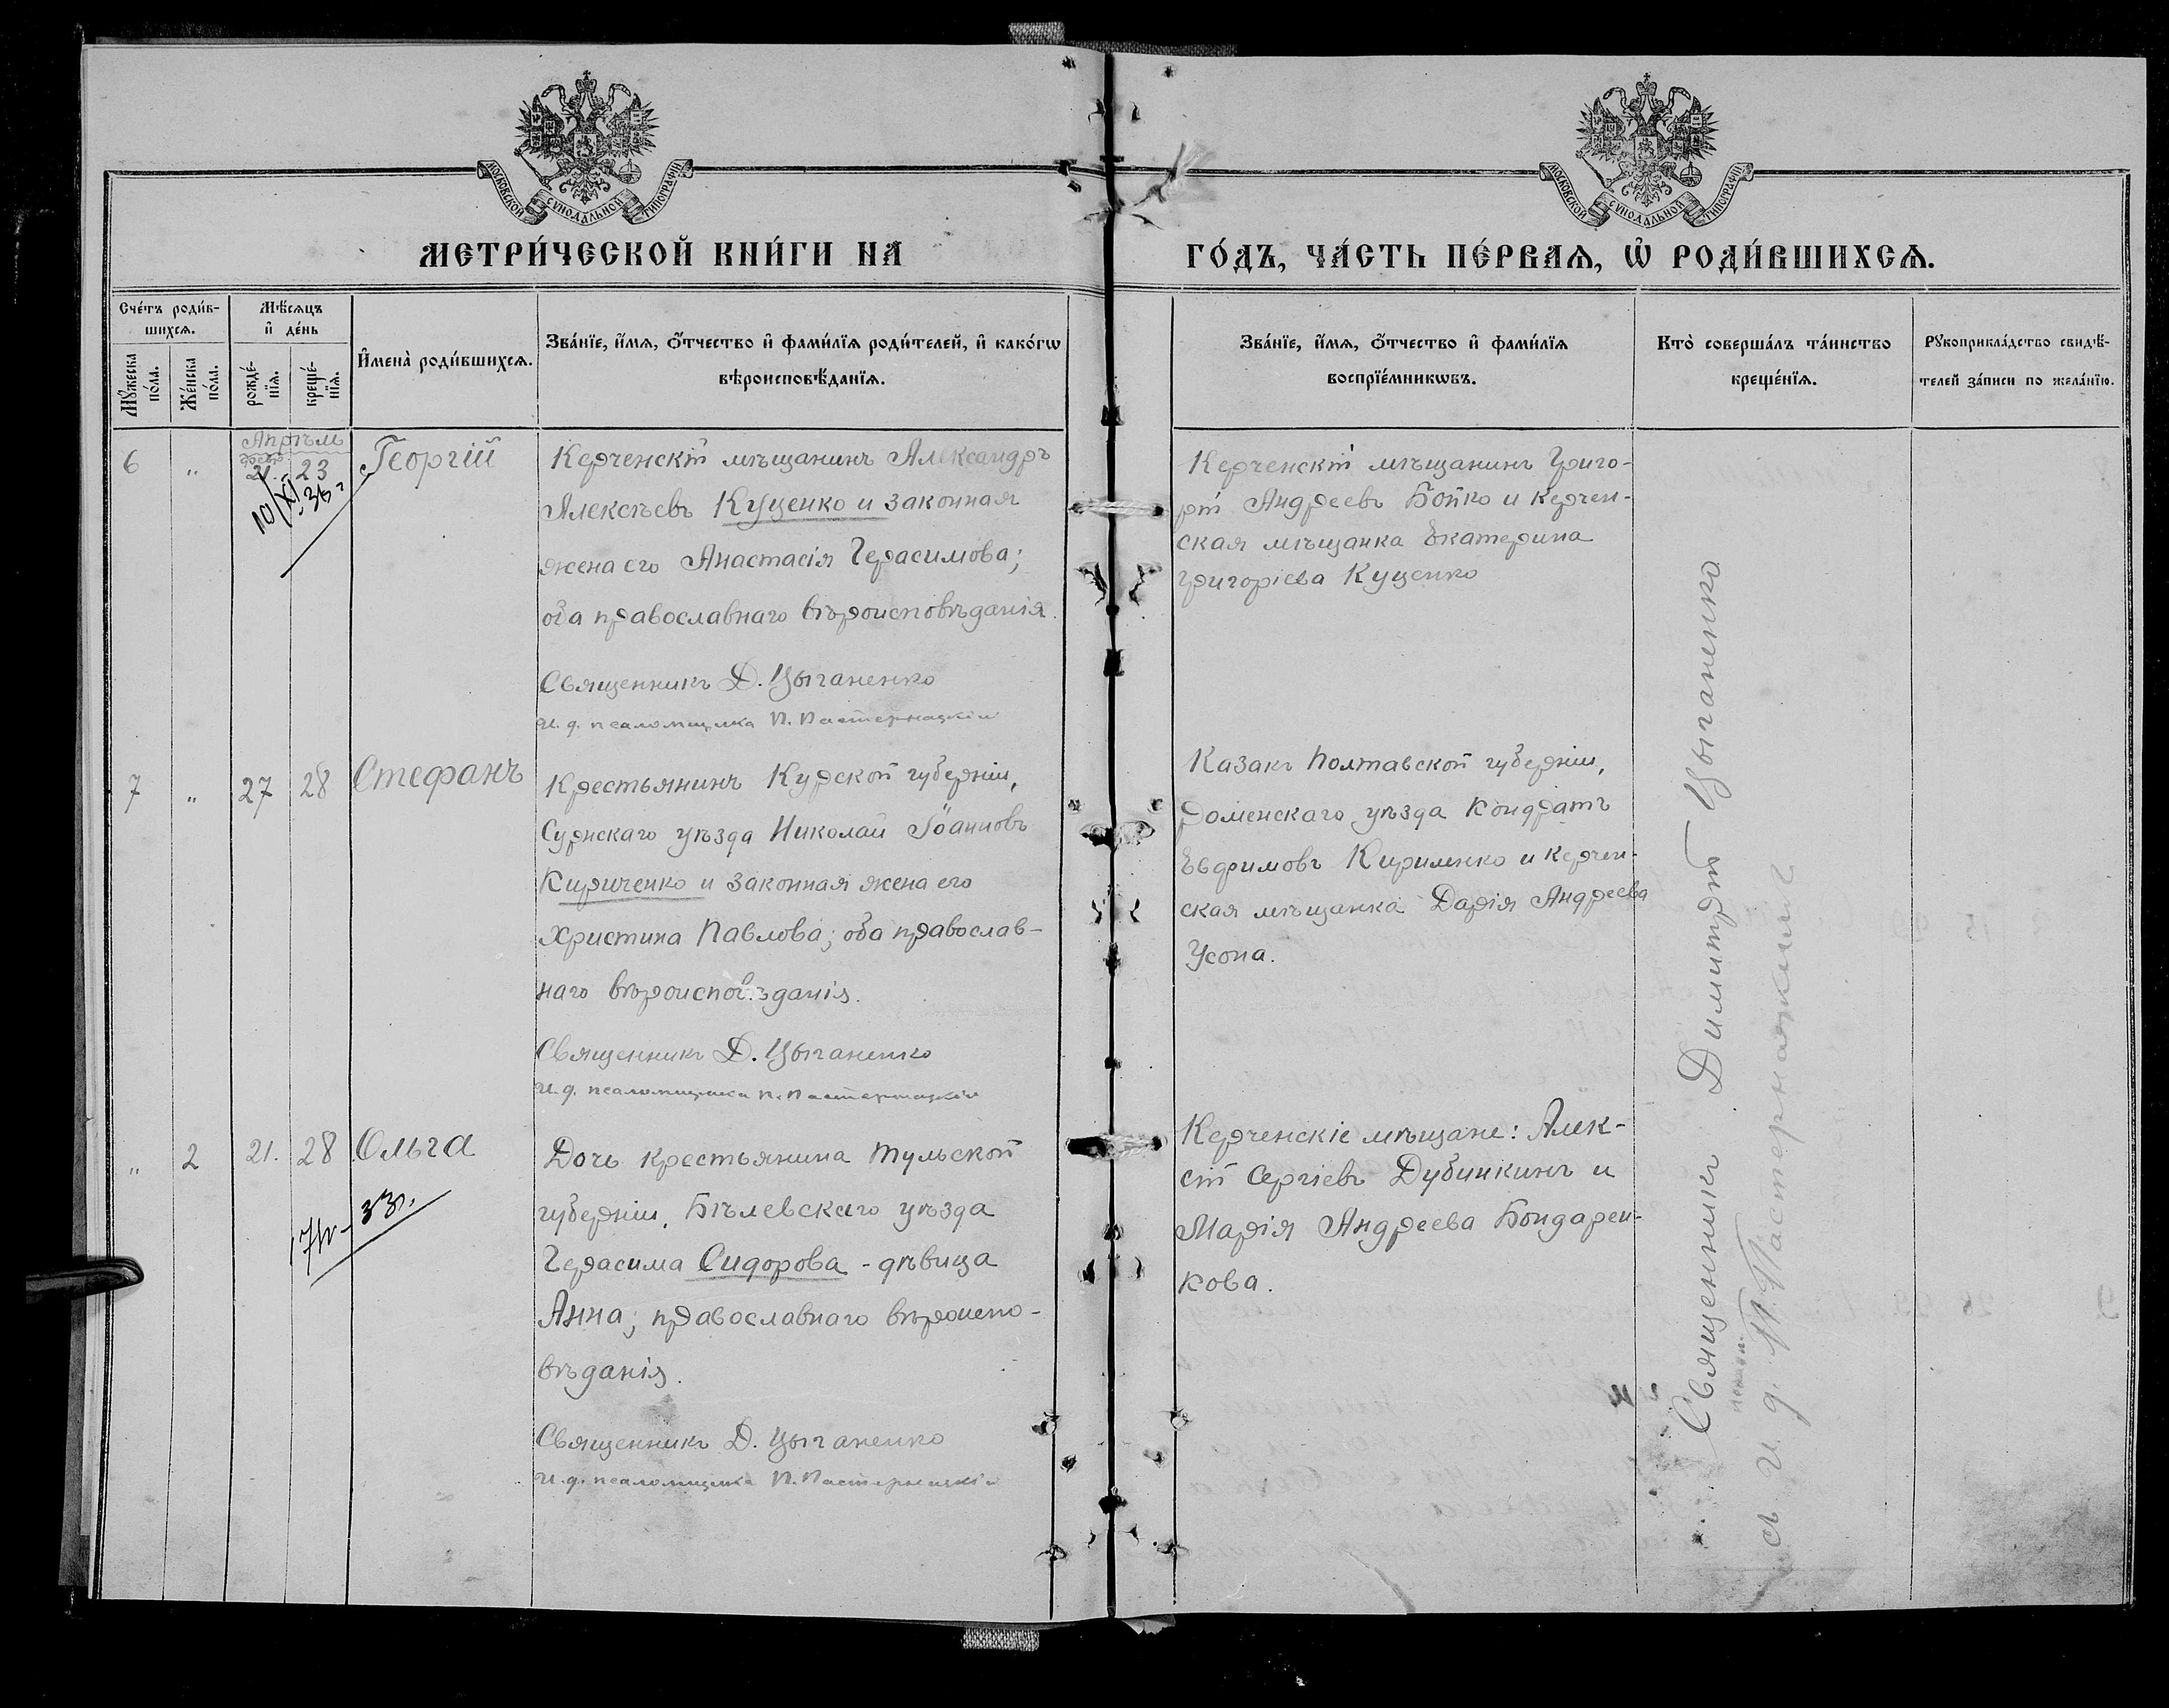 МОСКОВСКОЙ СѴНОДАЛЬНОЙ ТИПОГРАФІИ
МОСКОВСКОЙ СѴНОДАЛЬНОЙ ТИПОГРАФІИ
МЕТРИ́ЧЕСКОЙ КНИ́ГИ НА
ГО́ДЪ, ЧА́СТЬ ПЕ́РВАѦ, Ѡ҆ РОДИ́ВШИХСѦ.
Сче́тъ роди́в-
шихсѧ.
Мꙋ́жеска
по́ла.
Же́нска
по́ла.
Мѣ́сѧцъ
и҆ де́нь
рожде́-
нїѧ.
креще́-
нїѧ.
И҆мена̀ роди́вшихсѧ.
Зва́нїе, и҆́мѧ, ѻ҆́тчество и҆ фами́лїѧ роди́телей, и҆ како́гѡ
вѣроисповѣ́данїѧ.
Зва́нїе, и҆́мѧ, ѻ҆́тчество и҆ фами́лїѧ
воспрїе́мникѡвъ.
Кто̀ соверша́лъ та́инство
креще́нїѧ.
Рꙋкоприкла́дство свидѣ́-
телей за́писи по жела́нїю.
Апрѣль
6 " 21. 23 Георгій
10/XI.36.
Керченскій мѣщанинъ Александръ
Алексѣевъ Куценко и законная
жена его Анастасія Герасимова;
оба православнаго вѣроисповѣданія.
Священникъ Д. Цыганенко
И. д. псаломщика П. Пастернацкій
Керченскій мѣщанинъ Григо-
рій Андреевъ Бойко и керчен-
ская мѣщанка Екатерина
Григоріева Куценко
7 " 27 28 Стефанъ
Крестьянинъ Курской губерніи,
Суджскаго уѣзда Николай Іоанновъ
Кириченко и законная жена его
Христина Павлова; оба православ-
наго вѣроисповѣданія.
Священникъ Д. Цыганенко
И. д. псаломщика П. Пастернацкій
Казакъ Полтавской губерніи,
Роменскаго уѣзда Кондратъ
Евфимовъ Кириленко и керчен-
ская мѣщанка Дарія Андреева
Усона.
" 2 21. 28 Ольга
33.
Дочь крестьянина Тульской
губерніи, Бѣлевскаго уѣзда
Герасима Сидорова - дѣвица
Анна; православнаго вѣроиспо-
вѣданія.
Священникъ Д. Цыганенко
И. д. псаломщика П. Пастернацкій
Керченскіе мѣщане: Алек-
сій Сергіевъ Дубинкинъ и
Марія Андреева Бондарен-
кова.
Священникъ Димитрій Цыганенко
съ и. д. псалом. П. Пастернацкимъ